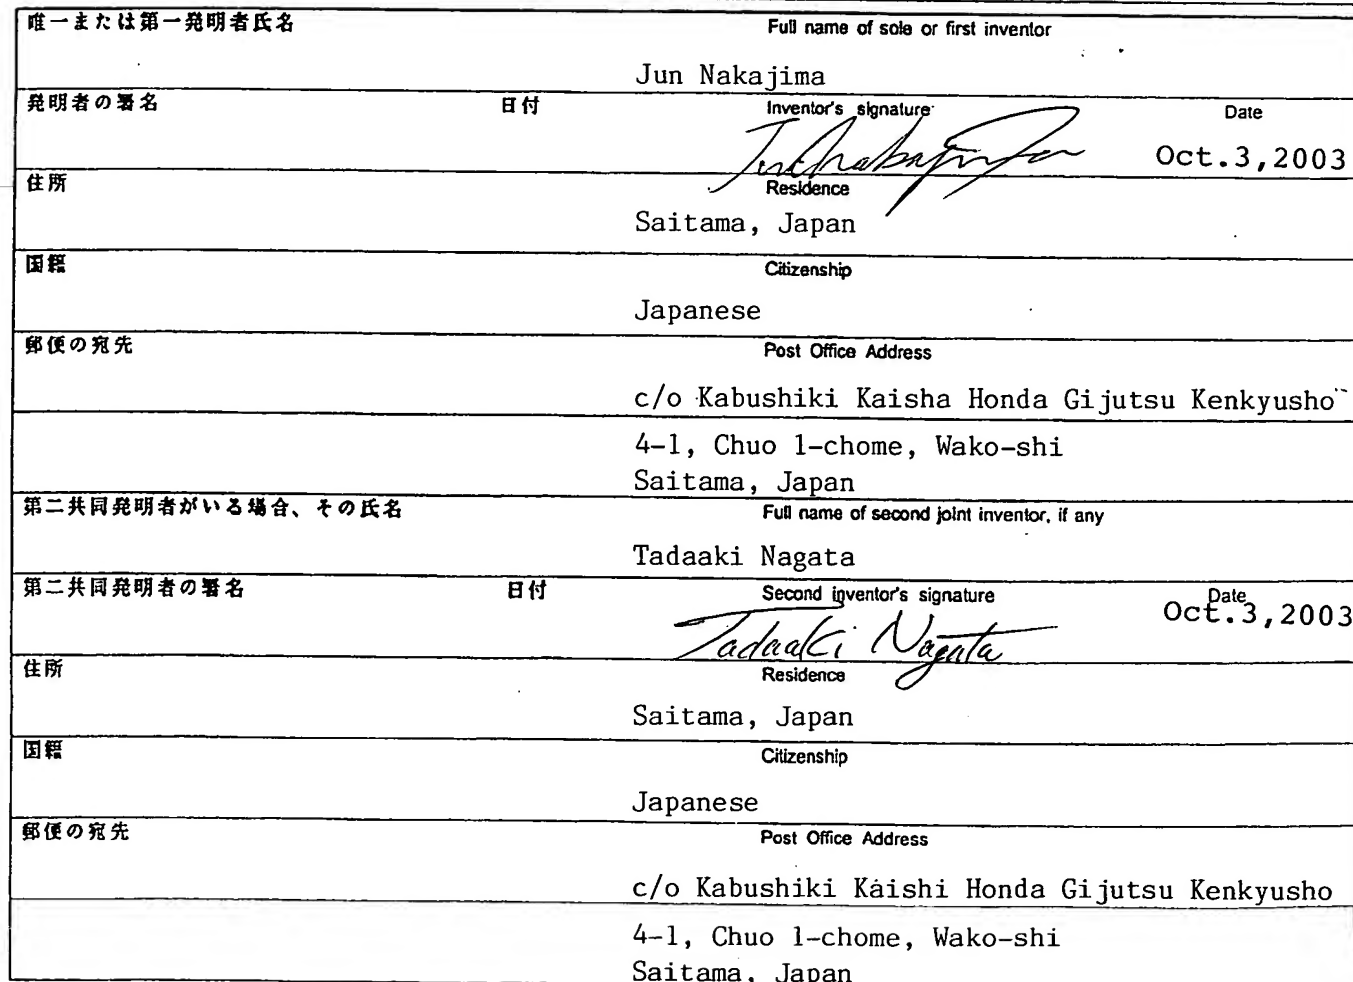 唯一または第一発明者氏名 Full name of sole or first inventor
Jun Nakajima
発明者の署名 日付 Inventor's signature Date
Jun Nakajima Oct.3,2003
住所 Residence
Saitama, Japan
国籍 Citizenship
Japanese
郵便の宛先 Post Office Address
c/o Kabushiki Kaisha Honda Gijutsu Kenkyusho
4-1, Chuo 1-chome, Wako-shi
Saitama, Japan
第二共同発明者がいる場合、その氏名 Full name of second joint inventor, if any
Tadaaki Nagata
第二共同発明者の署名 日付 Second inventor's signature Date
Tadaaki Nagata Oct.3,2003
住所 Residence
Saitama, Japan
国籍 Citizenship
Japanese
郵便の宛先 Post Office Address
c/o Kabushiki Kaishi Honda Gijutsu Kenkyusho
4-1, Chuo 1-chome, Wako-shi
Saitama, Japan